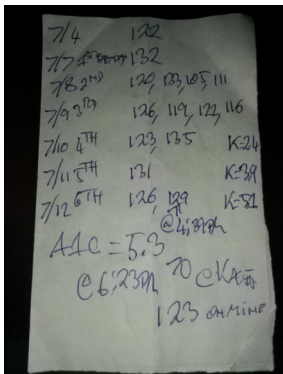 7/4 122
7/7 132
7/8 2ND 120, 133, 105, 111
7/9 3RD 126, 119, 122, 116
7/10 4TH 123, 135 K=24
7/11 5TH 131 K=39
7/12 6TH 126, 129 K=51
A1C = 5.3
@6:23PM 70 @
123 ON MINE